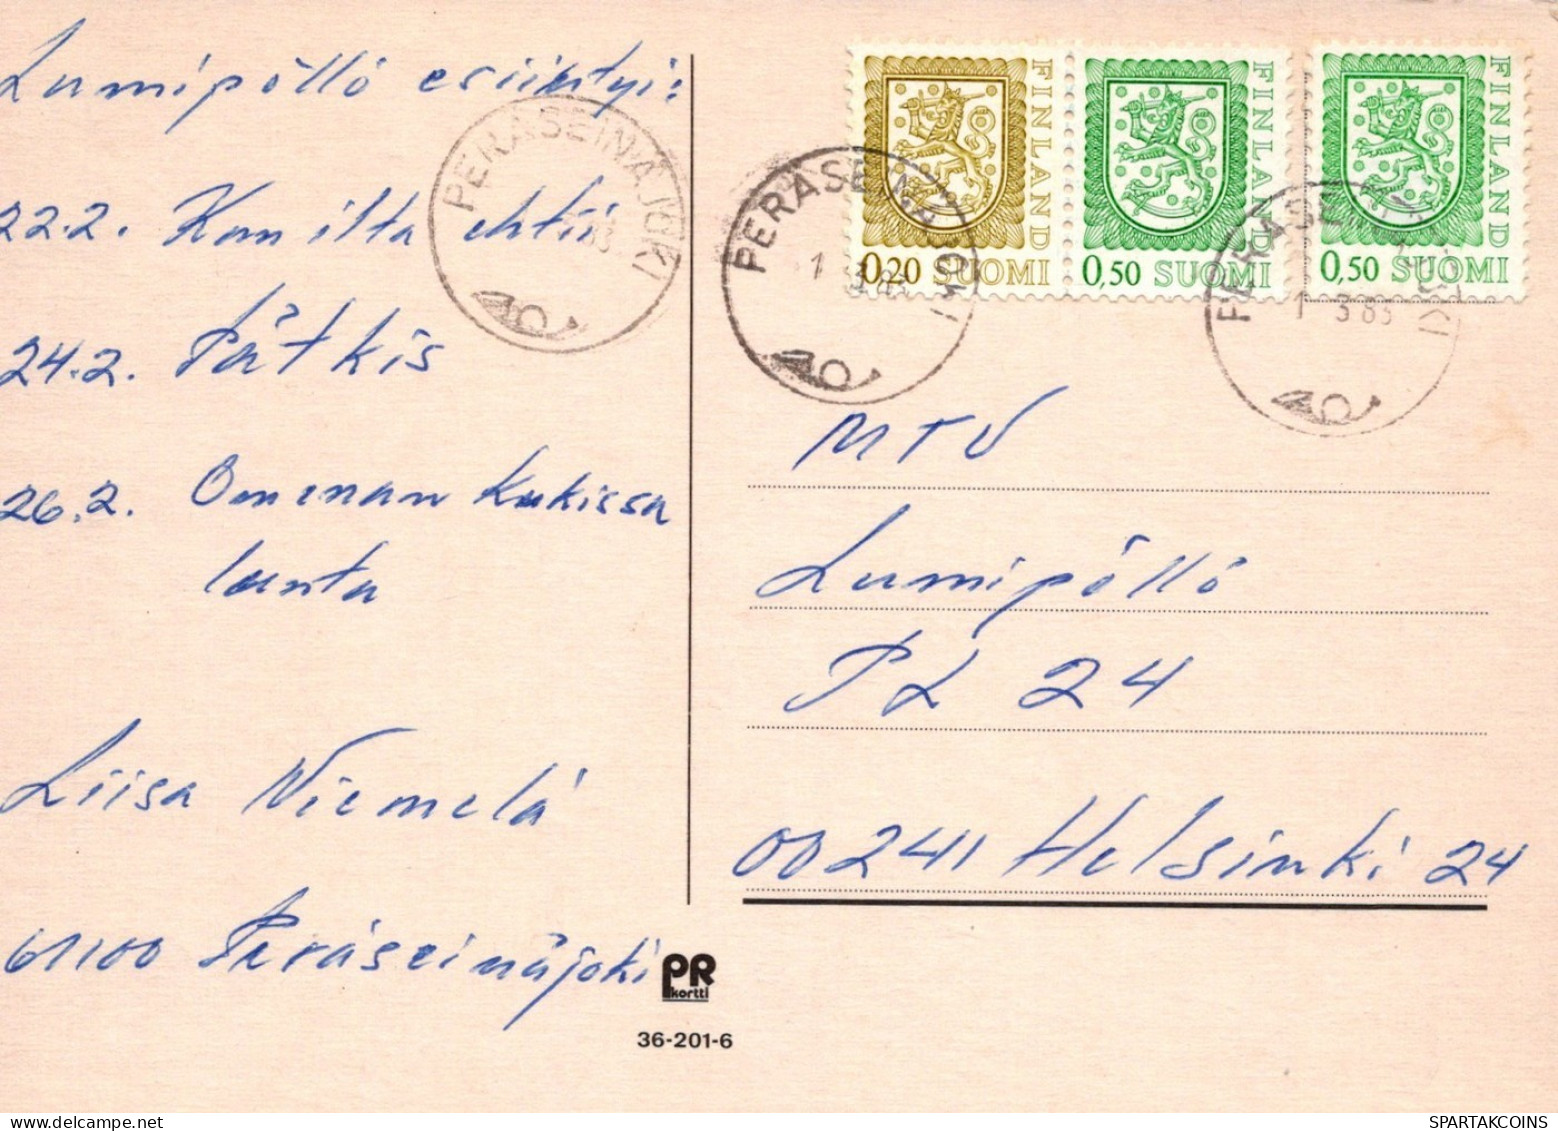 Lumipöllö esiintyi:
22.2. Kun ilta ehtii
24.2. Pätkis
26.2. Omenan kukissa
lunta
Liisa Niemelä
61100 Peräseinäjoki
PERÄSEINÄJOKI
83
PERÄSEINÄJOKI
PERÄSEINÄJOKI
1 3 83
FINLAND
0,20 SUOMI
FINLAND
0,50 SUOMI
FINLAND
0,50 SUOMI
MTV
Lumipöllö
PL 24
00241 Helsinki 24
PR
kortti
36-201-6
SPARTAKCOINS